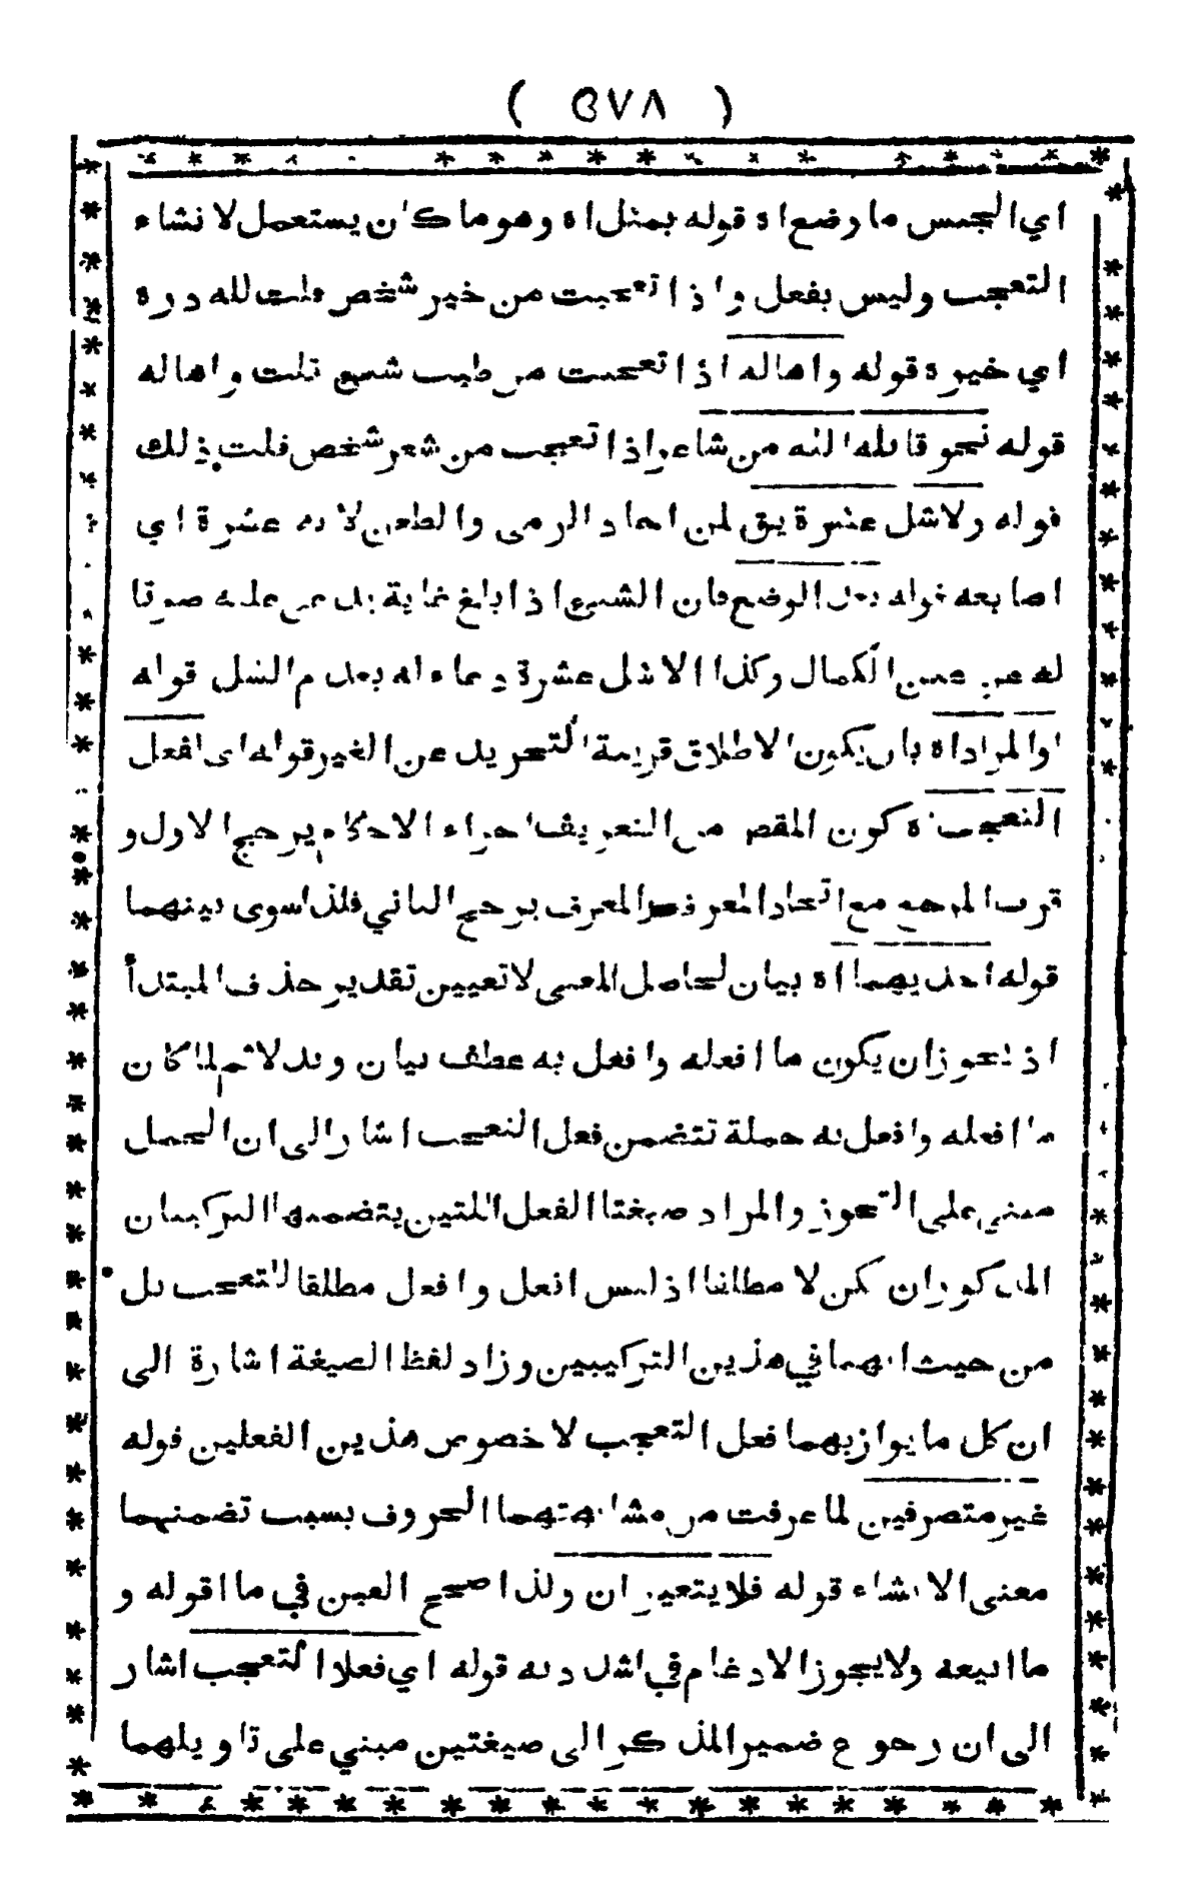 ( ٥٧٨ )
اي الجنس ما وضع اه قوله بمثل اه وهو ما كان يستعمل لانشاء
التعجب وليس بفعل واذا تعجبت من خير شخص قلت لله دره
اي خيره قوله واها له اذا تعجبت من طيب شيء قلت واها له
قوله نحو قاتله الله من شاعر اذا تعجب من شعر شخص قلت ذلك
قوله ولا شل عشرة يق لمن اجاد الرمى والطعن لا به عشرة اي
اصابعه قوله بعد الوضع فان الشيء اذا بلغ غاية يدعى عليه صوتا
له عن عين الكمال وكذا الا شل عشرة دعاء له بعدم الشل قوله
او المراد اه بان يكون الاطلاق قرينة التجريد عن الغير قوله اى افعل
التعجب اه كون المقص من التعريف اجراء الاحكام يرجح الاول و
قرب المرجع مع اتحاد المعرف والمعرف يرجح الثاني فلذا سوى بينهما
قوله احديهما اه بيان لحاصل المعنى لا تعيين تقدير حذف المبتدأ
اذ يجوز ان يكون ما افعله وافعل به عطف بيان وبدلا ثم لما كان
ما افعله وافعل به جملة تتضمن فعل التعجب اشار الى ان الحمل
مبني على التجوز والمراد صيغتا الفعل اللتين يتضمنها التركيبان
المذكوران لكن لا مطلقا اذ ليس افعل وافعل مطلقا للتعجب بل
من حيث انهما في هذين التركيبين وزاد لفظ الصيغة اشارة الى
ان كل ما يوازيهما فعل التعجب لا خصوص هذين الفعلين قوله
غير متصرفين لما عرفت من مشابهتهما الحروف بسبب تضمنهما
معنى الانشاء قوله فلا يتغيران ولذا صحح العين في ما اقوله و
ما ابيعه ولا يجوز الادغام في اشدد به قوله اي فعلا التعجب اشار
الى ان رجوع ضمير المذكر الى صيغتين مبني على تاويلهما